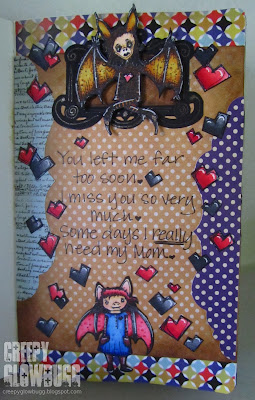 You left me far
too soon.
I miss you so very
much.
Some days I really
need my Mom.
CREEPY
GLOWBUGG
creepyglowbugg.blogspot.com